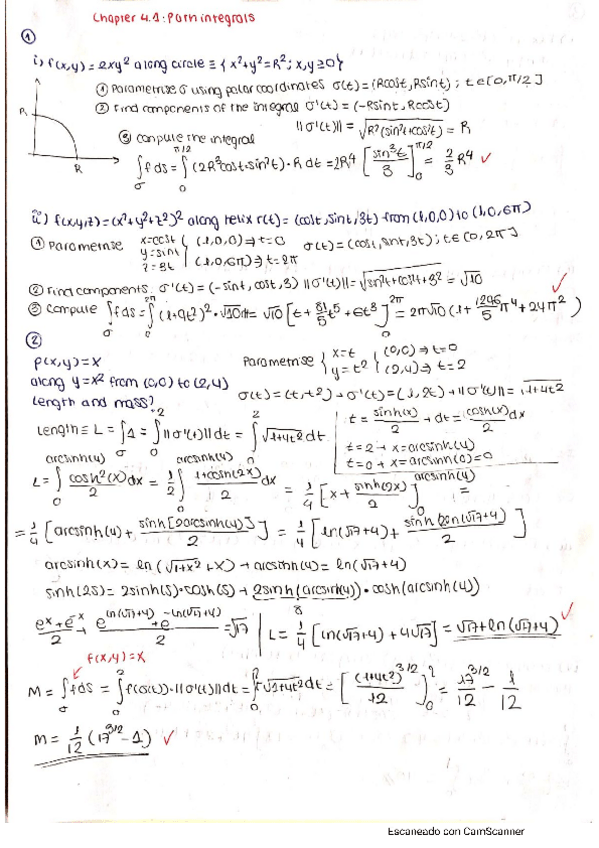 Chapter 4.1: Path integrals
①
i) f(x,y) = 2xy² along circle ≡ {x²+y²=R²; x,y≥0}
① Parametrise σ using polar coordinates σ(t)=(Rcost, Rsint); t∈[0,π/2]
② Find components of the integral σ'(t) = (-Rsint, Rcost)
R
||σ'(t)|| = √R²(sin²t+cos²t) = R
③ compute the integral
R
∫σ f ds = ∫₀^π/2 (2R³cost·sin²t)·R dt = 2R⁴ [sin³t/3]₀^π/2 = 2/3 R⁴ ✓
ii) f(x,y,z) = (x²+y²+z²)² along helix r(t) = (cost, sint, 3t) from (1,0,0) to (1,0,6π)
① Parametrise x=cost y=sint z=3t { (1,0,0) ⇒ t=0 (1,0,6π) ⇒ t=2π σ(t) = (cost, sint, 3t); t∈[0,2π]
② Find components. σ'(t) = (-sint, cost, 3) ||σ'(t)|| = √sin²t+cos²t+3² = √10 ✓
③ Compute ∫σ f ds = ∫₀^2π (1+9t²)²·√10 dt = √10 [t + 81/5 t⁵ + 6t³]₀^2π = 2π√10 (1 + 1296/5 π⁴ + 24π²)
②
ρ(x,y) = x
Parametrise { x=t y=t² { (0,0) ⇒ t=0 (2,4) ⇒ t=2
along y=x² from (0,0) to (2,4)
σ(t) = (t,t²) → σ'(t) = (1,2t) → ||σ'(t)|| = √1+4t²
Length and mass?
Length ≡ L = ∫σ 1 = ∫₀^t2 ||σ'(t)|| dt = ∫₀^2 √1+4t² dt
t = sinh(x)/2 → dt = cosh(x)/2 dx
t=2 → x=arcsinh(4)
t=0 → x=arcsinh(0)=0
L = ∫₀^arcsinh(4) cosh²(x)/2 dx = 1/2 ∫₀^arcsinh(4) 1+cosh(2x)/2 dx = 1/4 [x + sinh(2x)/2]₀^arcsinh(4) =
= 1/4 [arcsinh(4) + sinh[2arcsinh(4)]/2] = 1/4 [ln(√17+4) + sinh(2ln(√17+4))/2]
arcsinh(x) = ln(√1+x² + x) → arcsinh(4) = ln(√17+4)
sinh(2S) = 2sinh(S)·cosh(S) → 2sinh(arcsinh(4))·cosh(arcsinh(4))
8
eˣ+e⁻ˣ/2 → e^ln(√17+4) + e^-ln(√17+4)/2 = √17 | L = 1/4 [ln(√17+4) + 4√17] = √17 + ln(√17+4) ✓
f(x,y)=x
M = ∫σ f ds = ∫₀^2 f(σ(t))·||σ'(t)|| dt = ∫₀^2 t√1+4t² dt = [(1+4t²)^3/2/12]₀^2 = 17^3/2/12 - 1/12
M = 1/12 (17^3/2 - 1) ✓
Escaneado con CamScanner